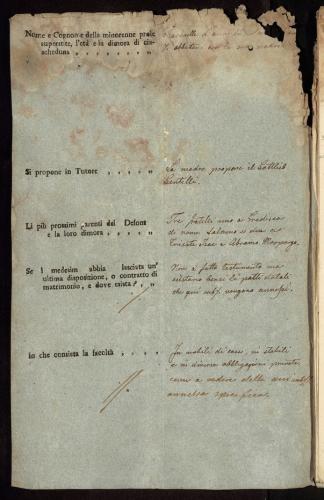 Nome e Cognome della minorenne prole
superstite, l'età e la dimora di cia-
scheduna , , , , , , ,
d'anni
con la sua madre
Si propone in Tutore , , , , ,
La madre propone il
Gentilli.
Li più prossimi Parenti del Defonto
e la loro dimora , , , , , ,
Tre fratelli uno a Gradisca
di nome Salamon e due a
Trieste e Abramo Morpurgo.
Se i medesimi abbia lasciata un'
ultima disposizione, o contratto di
matrimonio, e dove esista , ,
Non à fatto testamento ma
esistano bensì le patti dotali
che qui vengono annessi.
In che consista la facoltà , , , ,
In mobili di casa, in stabili
e in diverse obbligazioni private
come a vedere dalla qui
annessa specifica.